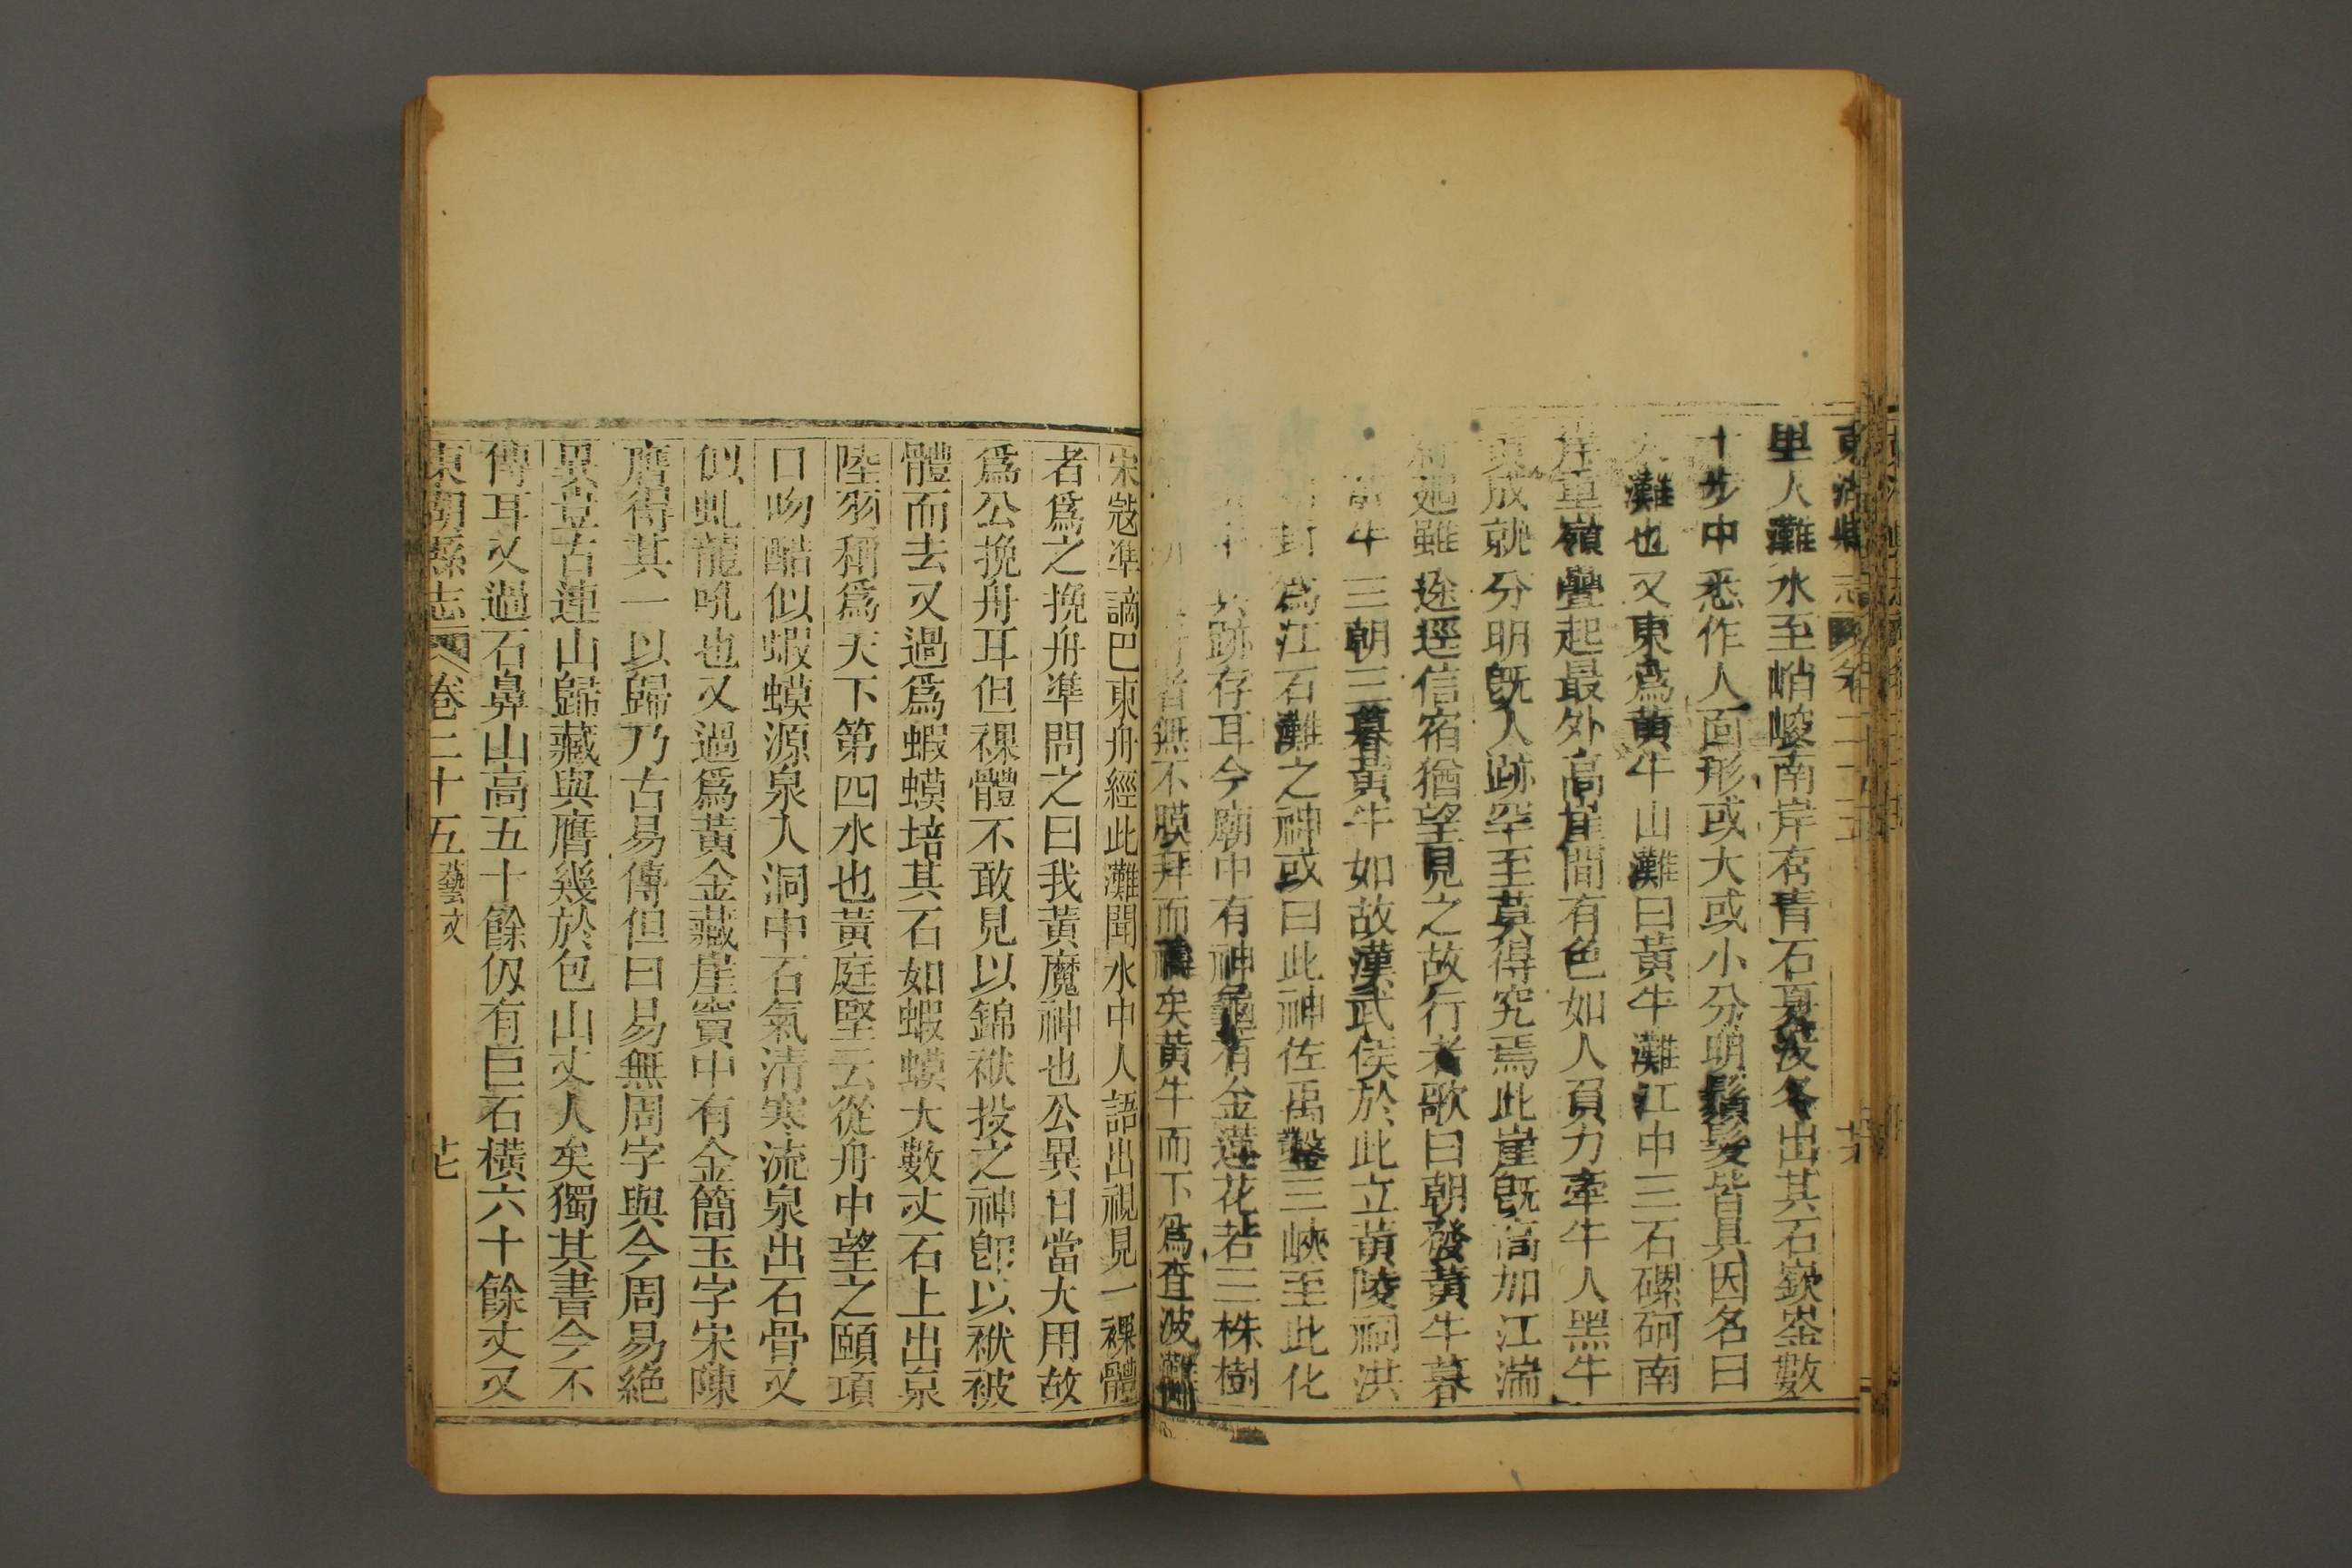 東湖縣志 卷二十五 共
里人灘水至峭崚南岸有青石夏没冬出其石嶔崟數
十步中悉作人面形或大或小分明鬚髮皆具因名曰
人灘也又東為黃牛山灘曰黃牛灘江中三石磥砢南
岸重嶺疊起最外高崖間有色如人負力牽牛人黑牛
黃成就分明既人跡罕至莫得究焉此崖既高加江湍
迴雖途逕信宿猶望見之故行者歌曰朝發黃牛暮
牛三朝三暮黃牛如故漢武侯於此立黃陵祠洪
封為江石灘之神或曰此神佐禹鑿三峽至此化
跡存耳今廟中有神龜有金蓮花若三株樹
者無不膜拜而禱矣黃牛而下為査波灘
宋宼準謫巴東舟經此灘聞水中人語出視見一裸體
者爲之挽舟準問之曰我黃魔神也公異日當大用故
爲公挽舟耳但裸體不敢見以錦袱投之神卽以袱被
體而去又過爲蝦蟆培其石如蝦蟆大數丈石上出泉
陸羽稱爲天下第四水也黃庭堅云從舟中望之頤項
口吻酷似蝦蟆源泉入洞中石氣清寒流泉出石骨又
似虬龍吼也又過爲黃金藏崖竇中有金簡玉字宋陳
鷹得其一以歸乃古易傳但曰易無周字與今周易絶
異豈古連山歸藏與鷹幾於包山丈人矣獨其書今不
傳耳又過石鼻山高五十餘仭有巨石橫六十餘丈又
東湖縣志 卷二十五 藝文 共